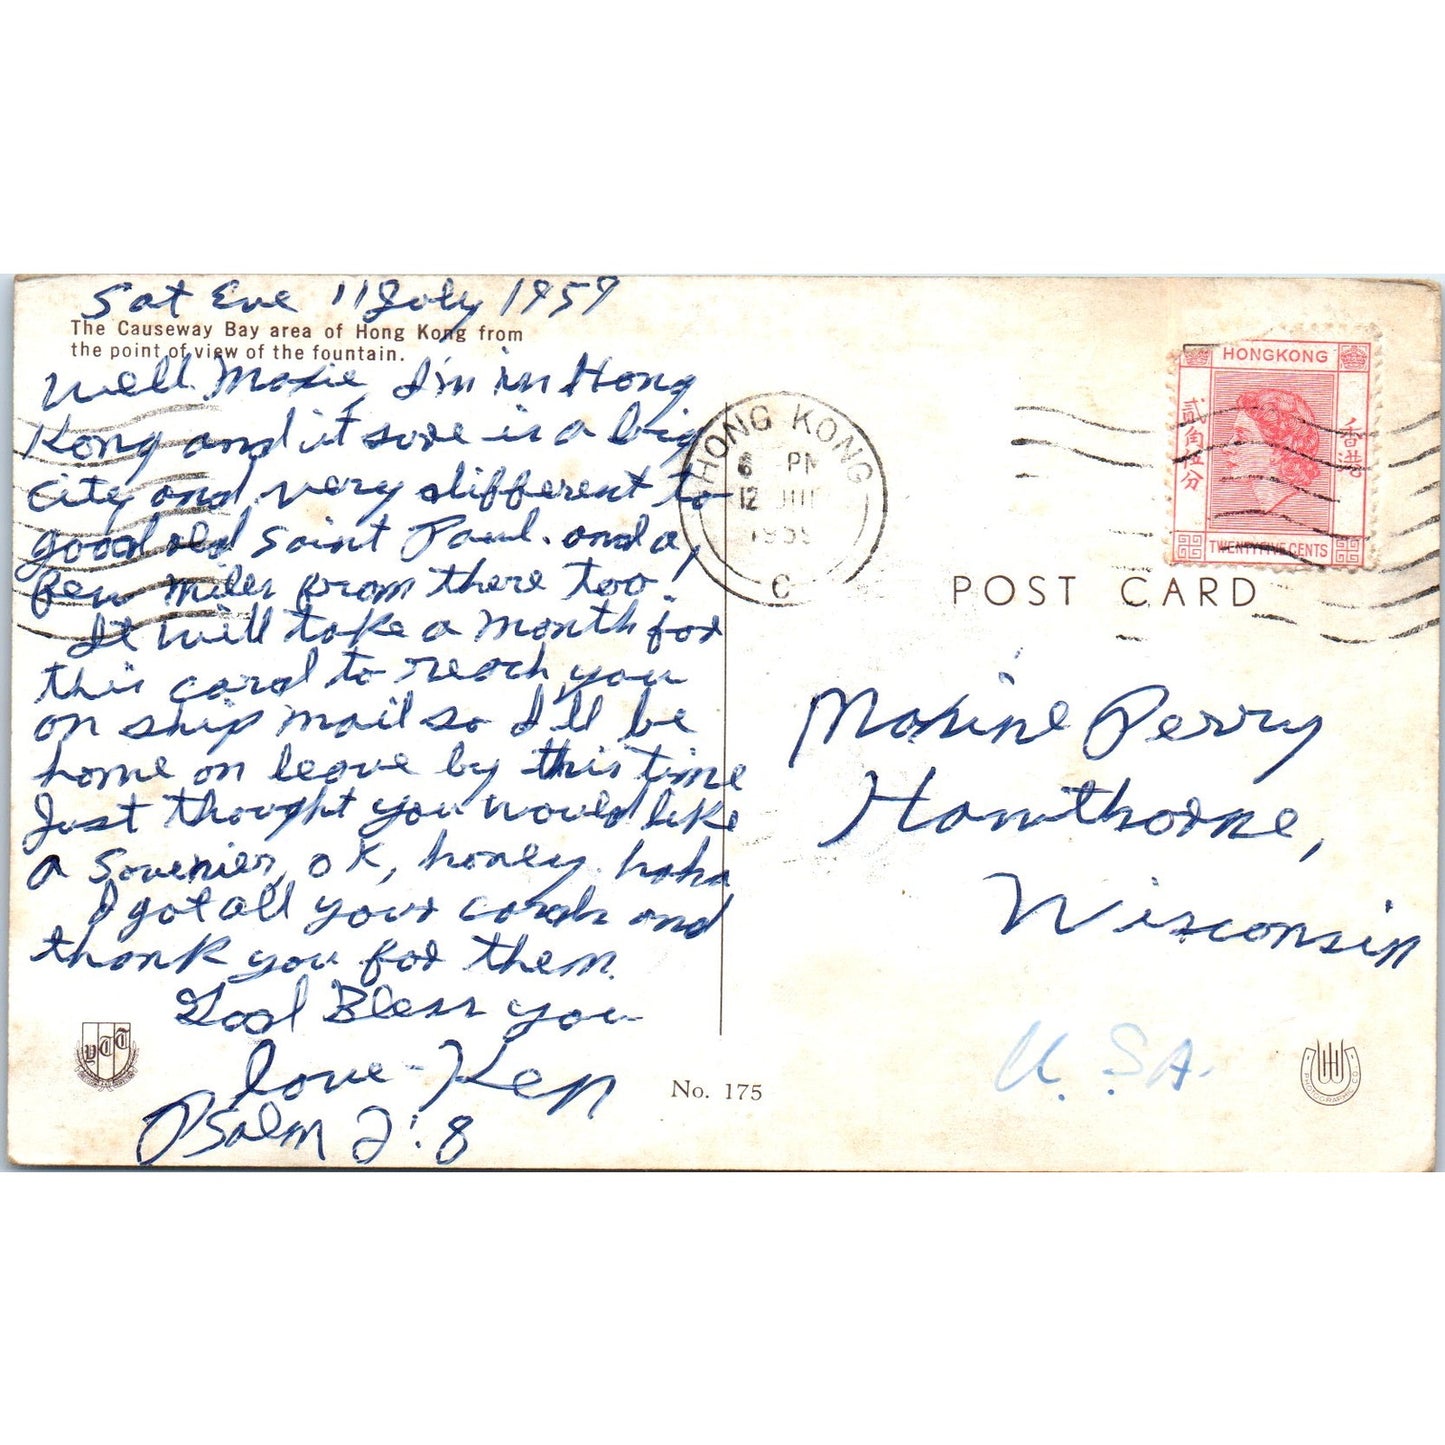 Sat Eve 11 July 1959
The Causeway Bay area of Hong Kong from
the point of view of the fountain.
Well Maxie, I'm in Hong
Kong and it sure is a big
city and very different to
good old Saint Paul. and a
few miles from there too!
It will take a month for
this card to reach you
on ship mail so I'll be
home on leave by this time
Just thought you would like
a Souvenier, ok, honey. haha
I got all your cards and
thank you for them.
God Bless you
love - Ken
Psalm 2:8
No. 175
HONG KONG
6 PM
12 JUL
1959
C
HONGKONG
貳角伍分
香港
TWENTYFIVE CENTS
POST CARD
Maxine Perry
Hawthorne,
Wisconsin
U.S.A.
PHOTOGRAPHIC CO.